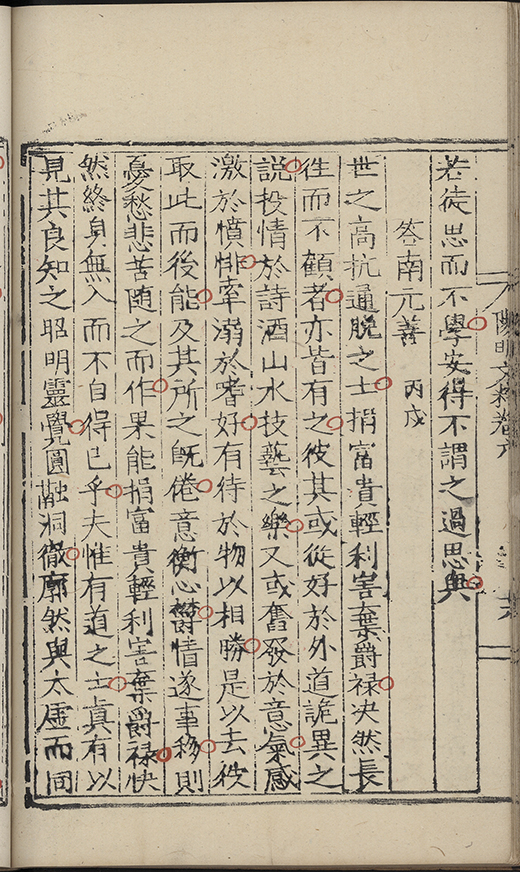 陽明文粹卷
若徒思而不學安得不謂之過思與
答南元善 丙戌
世之高抗通脫之士捐富貴輕利害棄爵祿决然長
徃而不顧者亦皆有之彼其或從好於外道詭異之
說投情於詩酒山水技藝之樂又或奮發於意氣感
激於憤悱宰溺於嗜好有待於物以相勝是以去彼
取此而後能及其所之旣倦意衡心鬱情隨事移則
憂愁悲苦随之而作果能捐富貴輕利害棄爵祿快
然終身無入而不自得已乎夫惟有道之士眞有以
見其良知之昭明靈覺圓融洞徹廓然與太虛而同